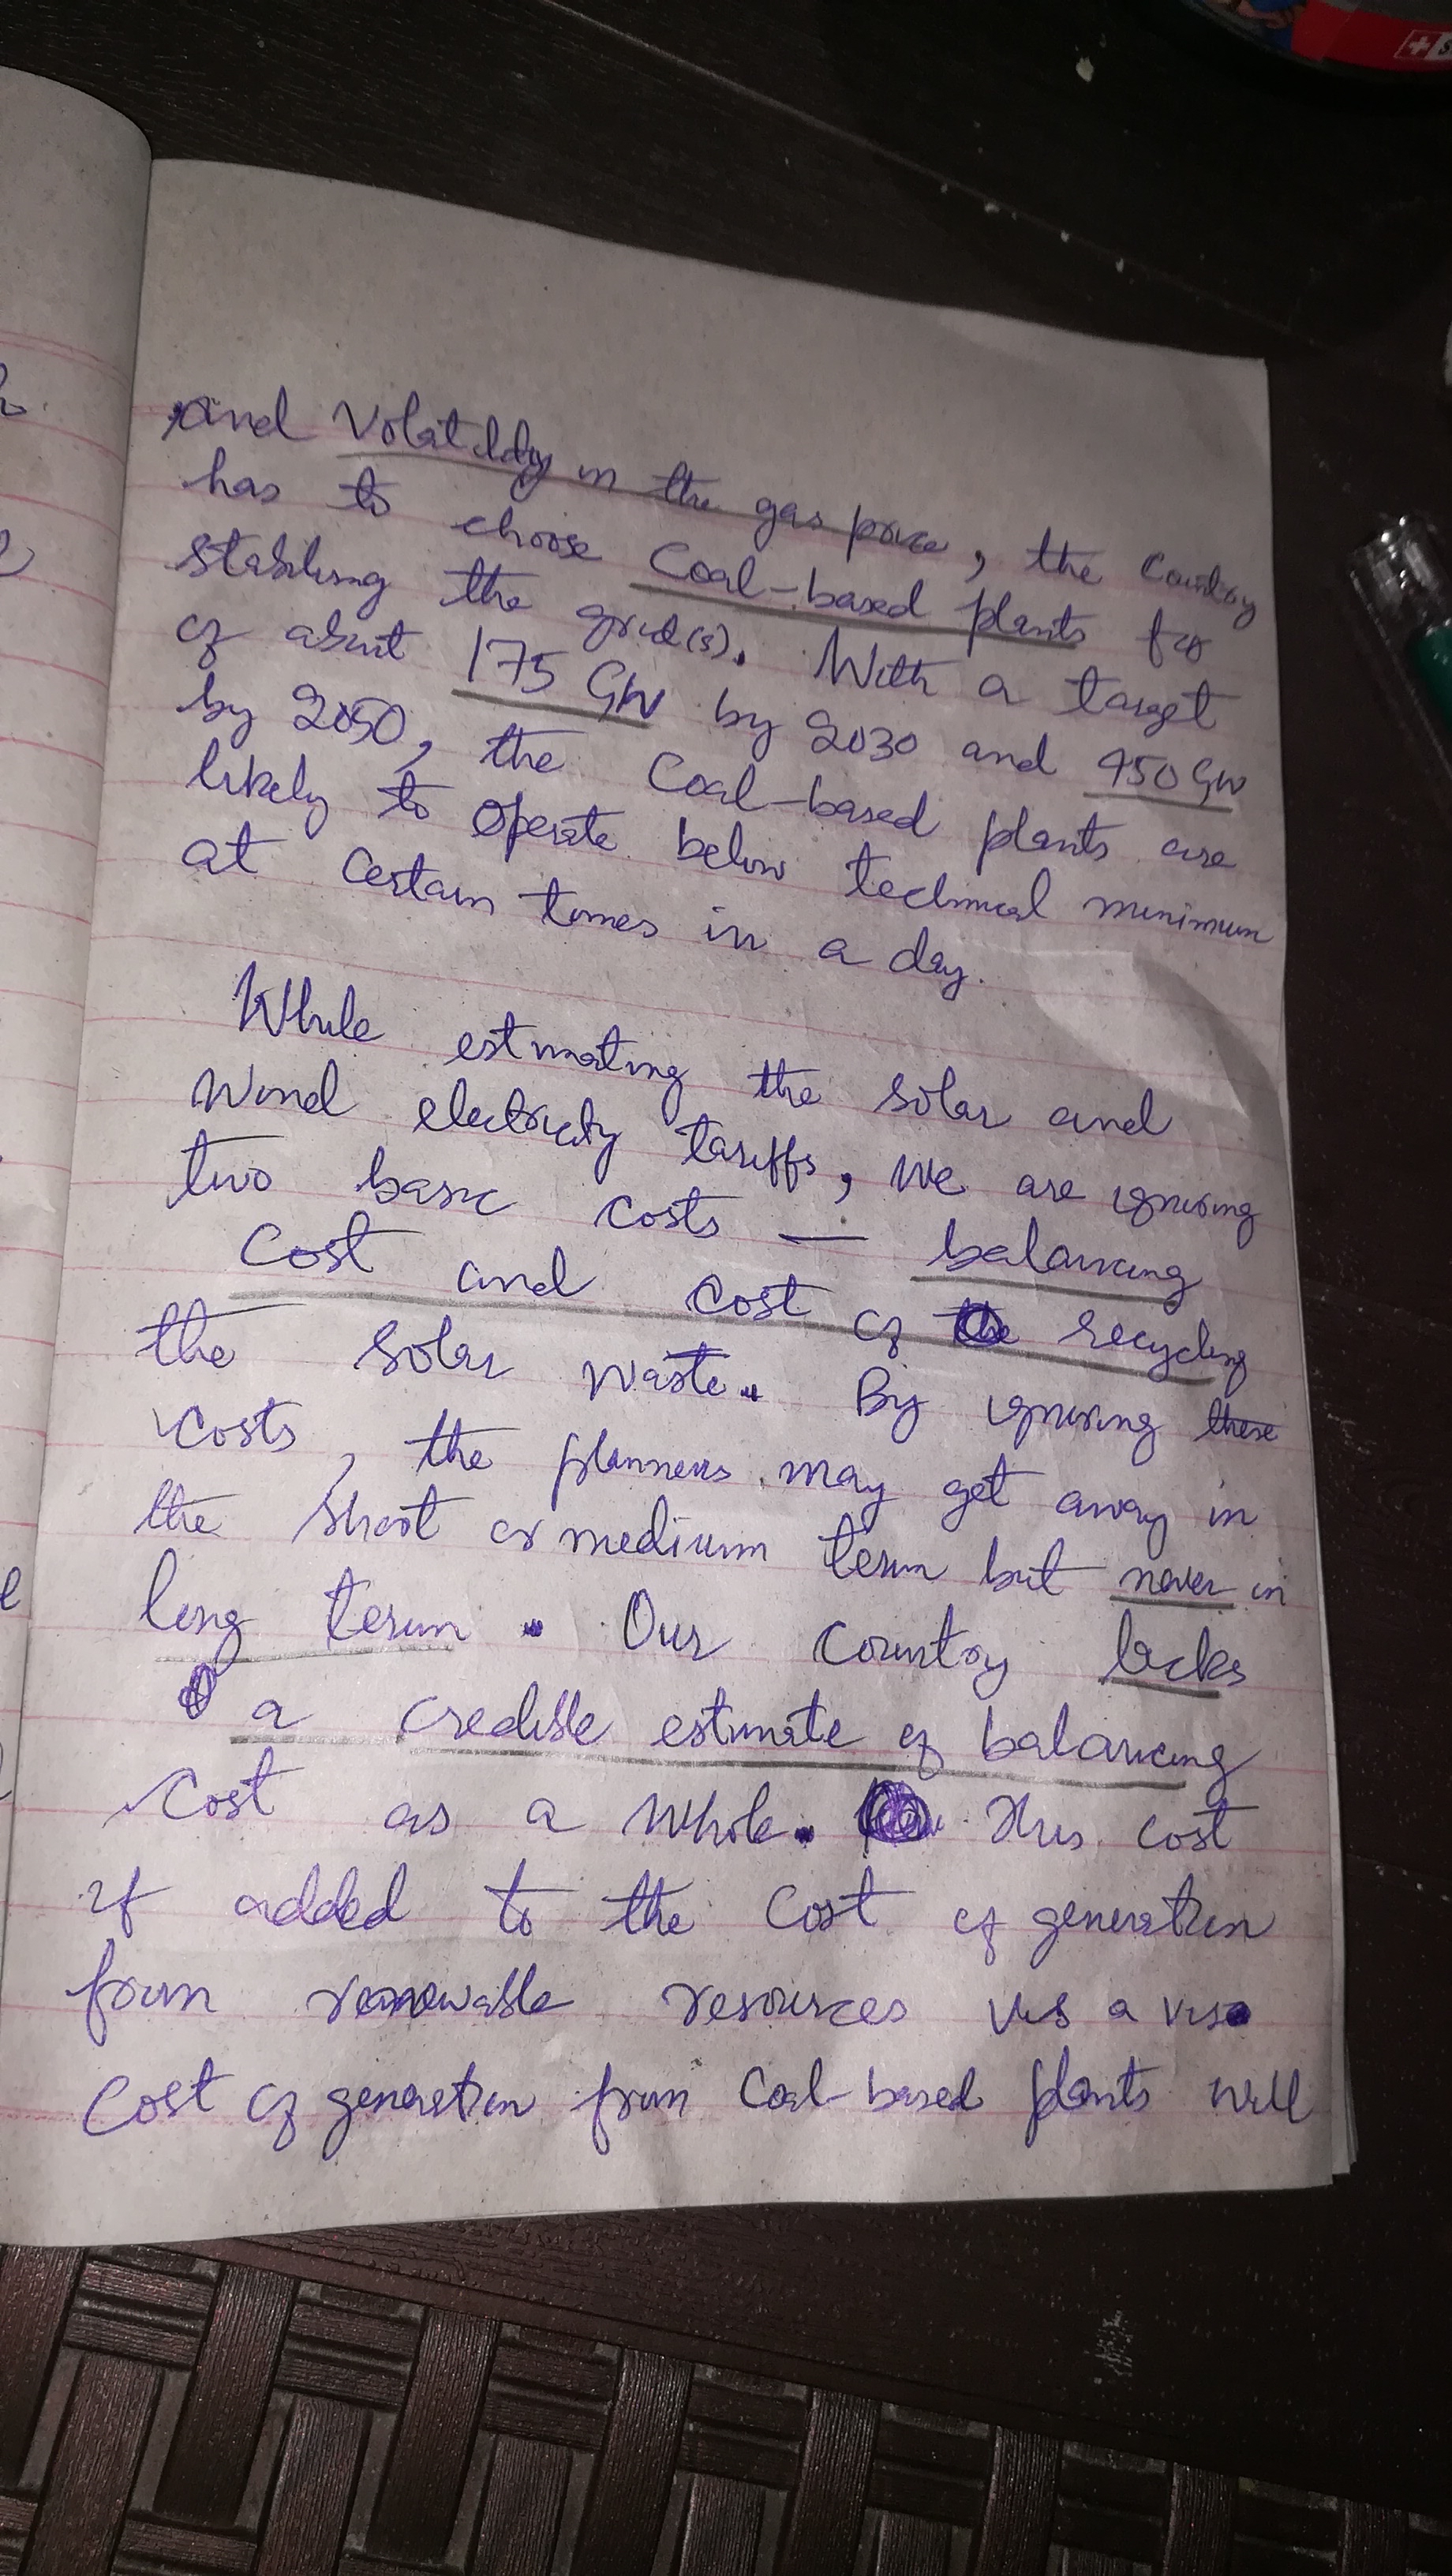 and Volatility in the gas price, the Country
has to choose Coal-based plants for
stabilising the grid(s). With a target
of about 175 GW by 2030 and 450 GW
by 2050, the Coal-based plants are
likely to operate below technical minimum
at certain times in a day.
While estimating the solar and
Wind electricity tariffs, we are ignoring
two basic costs — balancing
Cost and cost of the recycling
the solar waste. By ignoring these
Costs, the planners may get away in
the short or medium term but never in
long term. Our Country lacks
a credible estimate of balancing
Cost as a whole. This cost
if added to the cost of generation
from renewable resources vis a vis
Cost of generation from Coal-based plants will